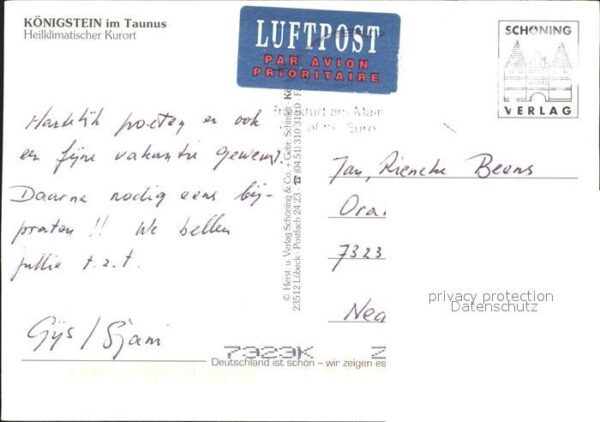 KÖNIGSTEIN im Taunus
Heilklimatischer Kurort
LUFTPOST
PAR AVION
PRIORITAIRE
SCHÖNING
VERLAG
Hartelijk poeteg en ook
een fijne vakantie gewenst.
Daarna nodig eens bij-
praten !! We bellen
jullie t.z.t.
Gijs / Sjani
© Herst. u. Verlag Schöning & Co. + Gebr. Schmidt
23512 Lübeck · Postfach 24 23 ☎ (04 51) 310 310
Frankfurt am Main
Jan, Rieneke Beens
Ora
7323
Nea
privacy protection
Datenschutz
7323K
Deutschland ist schön – wir zeigen es